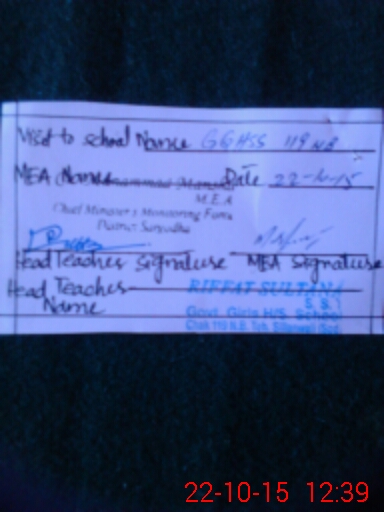 Visit to school Name GGHSS 119 NB
MEA Name Muhammad Date 22-10-15
M.E.A
Chief Minister's Monitoring Force
District Sargodha
Head Teacher Signature MEA Signature
Head Teacher RIFFAT SULTANA
Name S.S.T
Govt. Girls H/S. School
Chak 119 N.B. Teh. Sillanwali
22-10-15 12:39